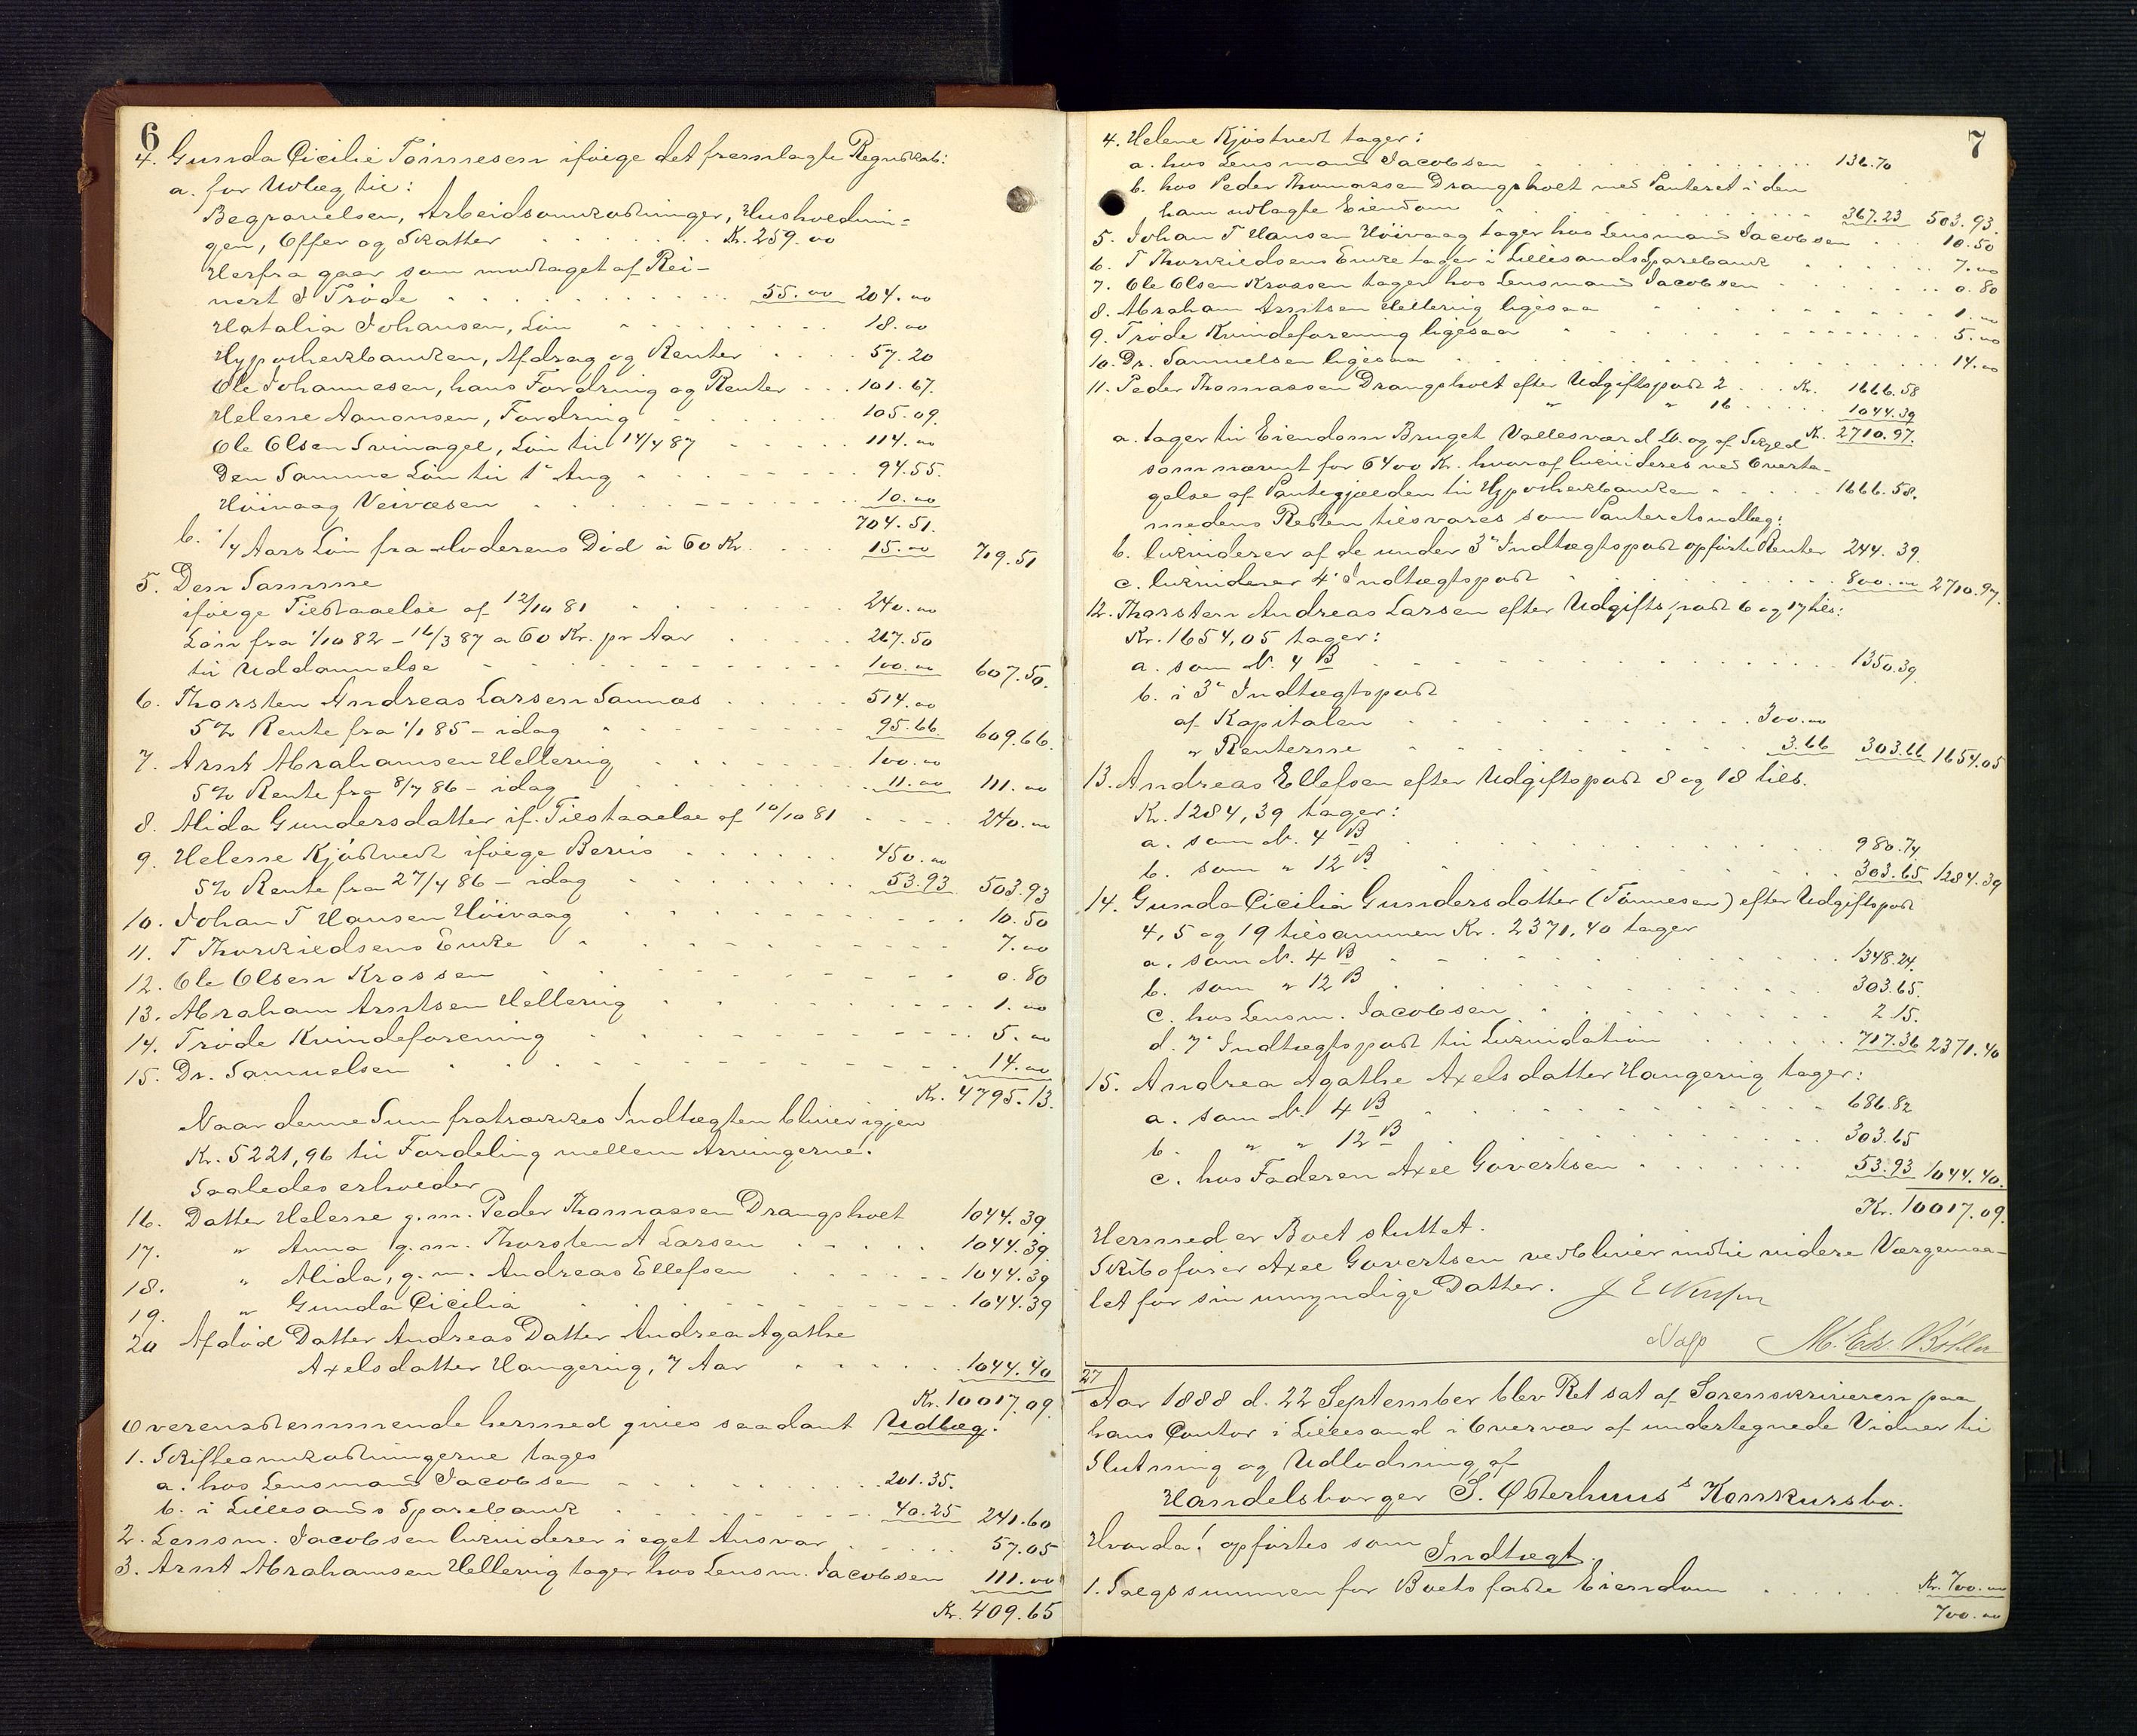 6
4. Gunda Cicilie Tönnesen ifölge det fremlagte Regnskab:
a. for Udlæg til:
Begravelsen, Arbeidsomkostninger, Husholdnin=
gen, Offer og Skatter . . . . . . Kr. 259.00
Herfra gaar som modtaget af Rei-
nert J Tröde . . . . . . . 55.00 204.00
Natalia Johansen, Lön . . . . . . 18.00
Hypothekbanken, Afdrag og Renter . . . . 57.20
Ole Johannesen, hans Fordring og Renter . . . 101.67.
Helene Aanonsen, Fordring . . . . . 105.09.
Ole Olsen Svinagel, Lön til 14/4 87 . . . . 114.00
Den Samme Lön til 1e Aug . . . . . 94.55.
Höivaag Veivæsen . . . . . . 10.00
704.51.
b. 1/4 Aars Lön fra Moderens Död à 60 Kr. . . . 15.00 719.51
5. Den Samme
ifölge Tilstaaelse af 12/10 81 . . . . . 240.00
Lön fra 1/10 82 - 16/3 87 a 60 Kr. pr Aar . . . 267.50
til Uddannelse . . . . . . . 100.00 607.50.
6. Thorsten Andreas Larsen Saunæs . . . . 514.00
5% Rente fra 1/1 85 - idag . . . . . 95.66. 609.66.
7. Arnt Abrahamsen Hellevig . . . . . 100.00
5% Rente fra 8/7 86 - idag . . . . . 11.00 111.00
8. Alida Gundersdatter if. Tilstaaelse af 10/10 81 . . . . 240.00
9. Helene Kjöstvedt ifölge Bevis . . . . . 450.00
5% Rente fra 27/4 86 - idag . . . . . 53.93 503.93
10. Johan T Hansen Höivaag . . . . . . 10.50
11. T Thorkildsens Enke . . . . . . 7.00
12. Ole Olsen Krossen . . . . . . 0.80
13. Abraham Arntsen Hellevig . . . . . . 1.00
14. Tröde Kvindeforening . . . . . . 5.00
15. Dr. Samuelsen . . . . . . . 14.00
Kr. 4795.13.
Naar denne Sum fratrækkes Indtægten bliver igjen
Kr. 5221,96 til Fordeling mellem Arvingerne.
Saaledes erholder
16. Datter Helene g.m. Peder Thomassen Drangsholt 1044.39.
17. " Anna g.m. Thorsten A Larsen . . . . 1044.39.
18. " Alida, g.m. Andreas Ellefsen . . . . 1044.39
19. " Gunda Cicilia . . . . . . 1044.39
20 Afdöd Datter Andreas Datter Andrea Agathe
Axelsdatter Haugevig, 7 Aar . . . . . 1044.40
Kr. 10017.09.
Overensstemmende hermed gives saadant Udlæg.
1. Skifteomkostningerne tages
a. hos Lensmand Jacobsen . . . . . 201.35.
b. i Lillesands Sparebank . . . . . 40.25 241.60
2. Lensm. Jacobsen likviderer i eget Ansvar . . . . 57.05
3. Arnt Abrahamsen Hellevig tager hos Lensm. Jacobsen 111.00
Kr. 409.65
7
4. Helene Kjöstvedt tager:
a. hos Lensmand Jacobsen . . . . . . 136.70
b. hos Peder Thomassen Drangsholt med Panteret i den
ham udlagte Eiendom . . . . . . 367.23 503.93.
5. Johan T Hansen Höivaag tager hos Lensmand Jacobsen . . 10.50
6. T Thorkildsens Enke tager i Lillesands Sparebank . . . 7.00
7. Ole Olsen Krossen tager hos Lensmand Jacobsen . . . . 0.80
8. Abraham Arntsen Hellevig ligesaa . . . . . 1.00
9. Tröde Kvindeforening ligesaa . . . . . . 5.00
10. Dr. Samuelsen ligesaa . . . . . . 14.00
11. Peder Thomassen Drangsholt efter Udgiftspost 2 . . . Kr. 1666.58
" " 16 . . . . 1044.39
Kr. 2710.97.
a. tager til Eiendom Bruget Vallesværd Lb. og af Skyld
som nævnt for 6400 Kr. hvoraf likvideres ved Overta-
gelse af Pantegjælden til Hypothekbanken . . . . 1666.58.
medens Resten tilsvares som Panteretsudlæg:
b. likviderer af de under 3e Indtægtspost opförte Renter 244.39.
c. likviderer 4e Indtægtspost . . . . . 800.00 2710.97.
12. Thorsten Andreas Larsen efter Udgiftspost 6 og 17 tils:
Kr. 1654,05 tager:
a. som N. 4 B . . . . . . . 1350.39
b. i 3e Indtægtspost
af Kapitalen . . . . . . 300.00
" Renterne . . . . . . 3.66 303.66 1654.05
13. Andreas Ellefsen efter Udgiftspost 8 og 18 tils.
Kr. 1284,39 tager:
a. som N. 4 B . . . . . . . 980.74
b. som " 12 B . . . . . . . 303.65 1284.39
14. Gunda Cicilia Gundersdatter (Tönnesen) efter Udgiftspost
4, 5 og 19 tilsammen Kr. 2371.40 tager
a. som N. 4 B . . . . . . . 1348.24.
b. som " 12 B . . . . . . . 303.65.
c. hos Lensm. Jacobsen . . . . . . 2.15.
d. 7e Indtægtspost til Likvidation . . . . 717.36 2371.40
15. Andrea Agathe Axelsdatter Haugevig tager:
a. som N. 4 B . . . . . . . 686.82
b. " " 12 B . . . . . . . 303.65
c. hos Faderen Axel Govertsen . . . . . 53.93 1044.40.
Kr. 10017.09.
Hermed er Boet sluttet.
Skibsförer Axel Govertsen vedbliver indtil videre Værgemaa-
let for sin umyndige Datter.
M. Edv. Böhler
27
Aar 1888 d. 22 September blev Ret sat af Sorenskriveren paa
hans Contor i Lillesand i Overvær af undertegnede Vidner til
Slutning og Udlodning af
Handelsborger S. Østerhuus's Konkursbo.
Hvorda! opförtes som
Indtægt.
1. Salgssummen for Boets faste Eiendom . . . . . Kr. 700.00
700.00